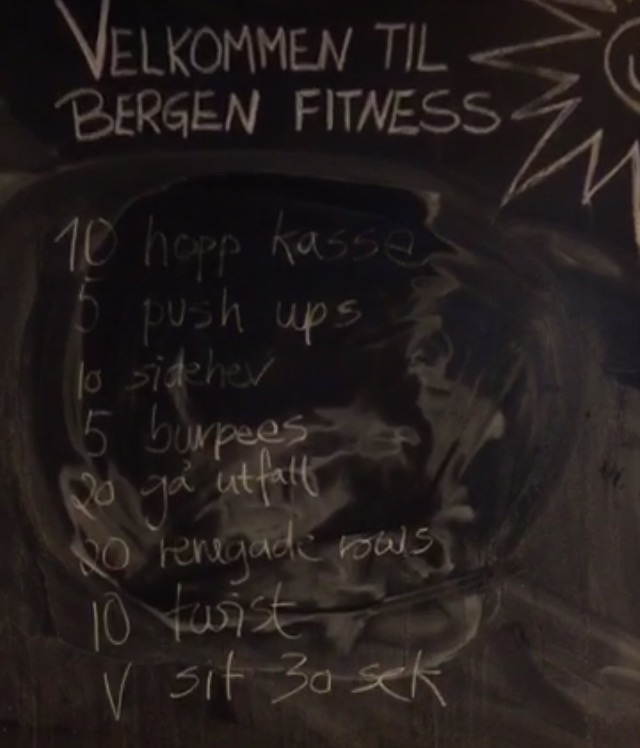 VELKOMMEN TIL
BERGEN FITNESS
10 hopp kasse
5 push ups
10 sidehev
5 burpees
20 gå utfall
20 renegade rows
10 twist
V sit 30 sek